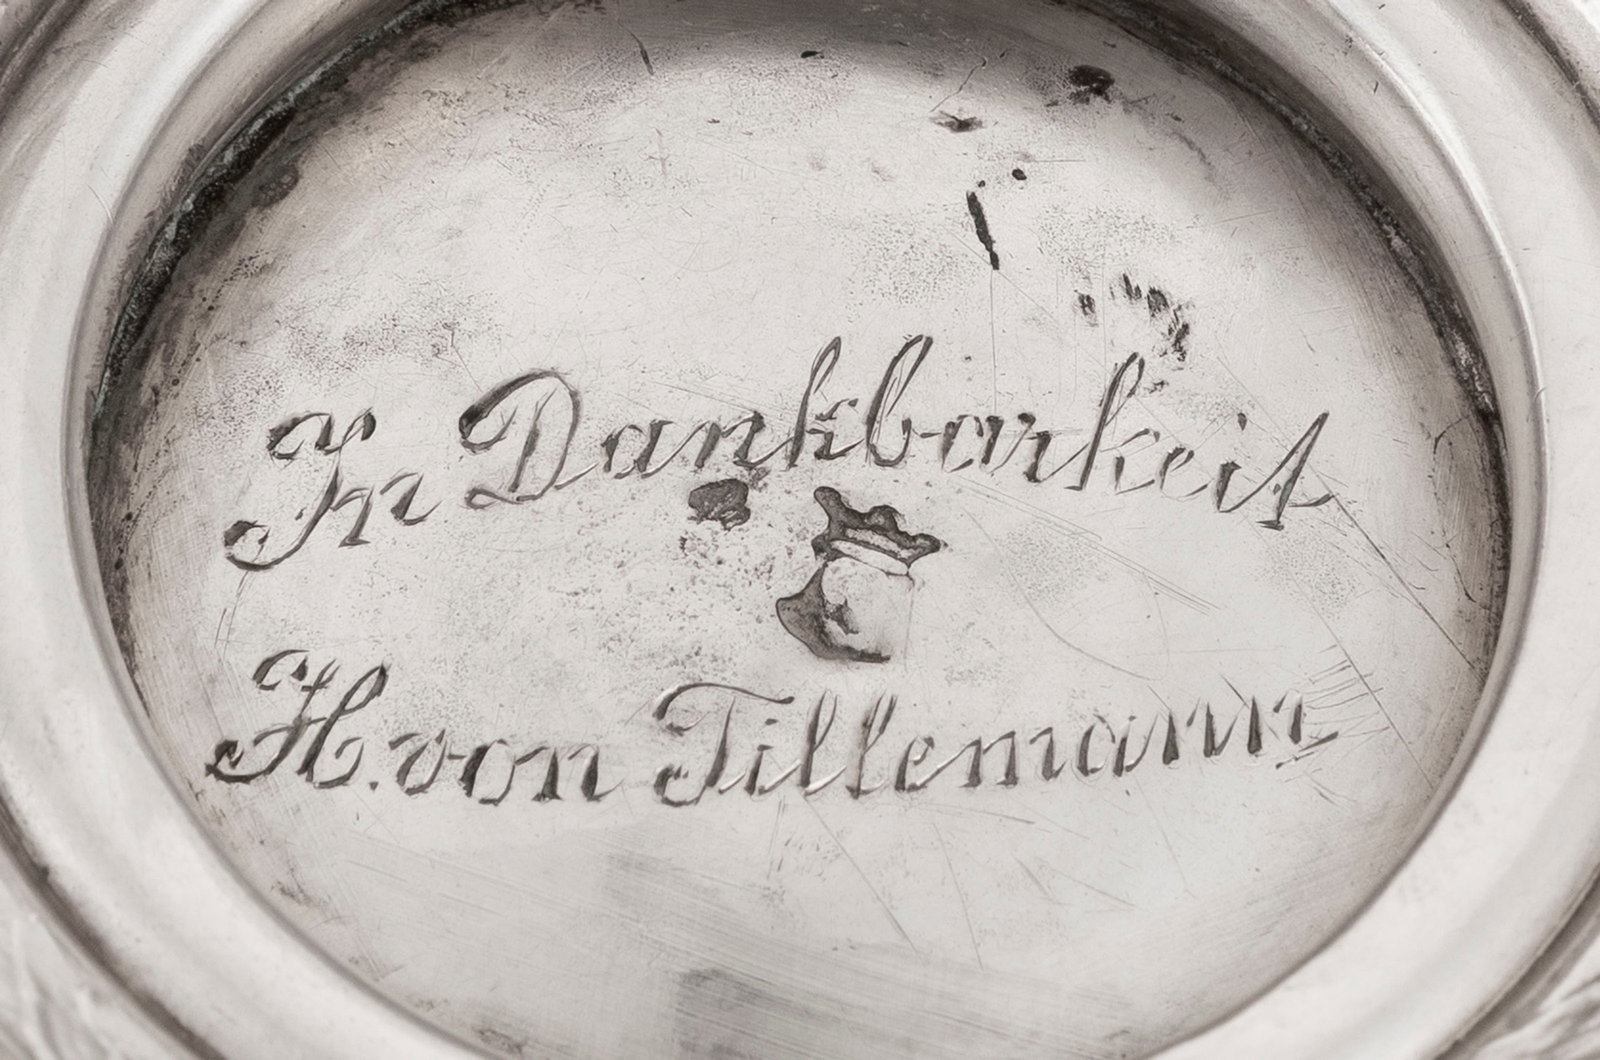 In Dankbarkeit
H. von Tillemann